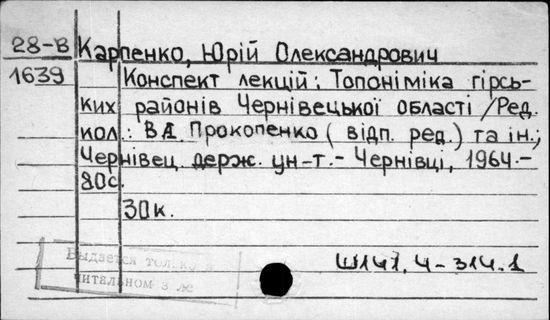 28-В Карпенко, Юрій Олександрович
1639 Конспект лекцій: Топоніміка гірсь-
ких районів Чернівецької області /Ред.
кол.: В.А. Прокопенко ( відп. ред.) та ін.;
Чернівец. держ. ун-т.- Чернівці, 1964.-
80с.
30к.
Выдается только в
Ш141.4-314.1
читальном з ле